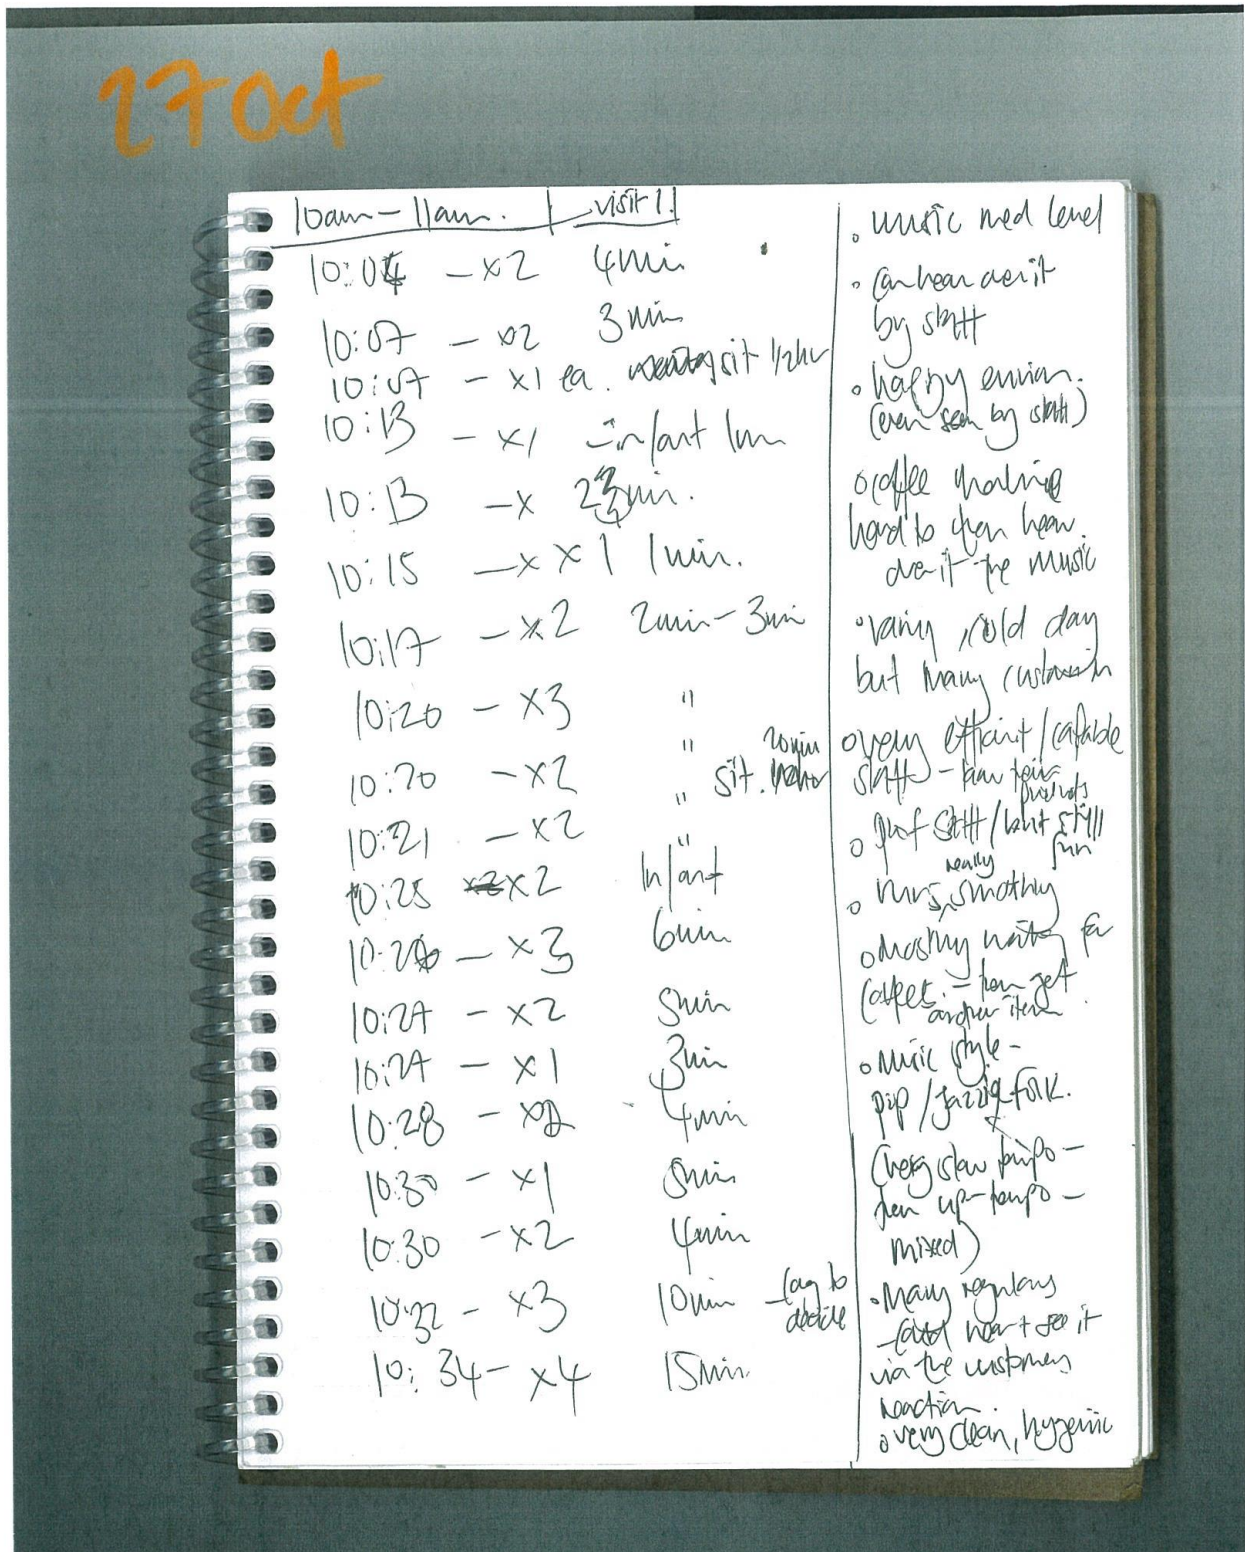 27 Oct
10am – 11am. visit 1.
10:04 – x2 4min
10:07 – x2 3min
10:07 – x1 ea. sit 1/2hr
10:13 – x1 – in/out 1min
10:13 – x 2 3min.
10:15 – x x1 1min.
10:17 – x2 2min – 3min
10:20 – x3 "
10:20 – x2 " sit. 20min
10:21 – x2 "
10:25 x2 in/out "
10:26 – x3 6min
10:27 – x2 5min
10:27 – x1 3min
10:28 – x2 4min
10:30 – x1 5min
10:30 – x2 4min
10:32 – x3 10min – long to
decide
10:34 – x4 15min
• music med level
• can hear over it
by staff
• happy environ.
(even seen by staff)
• coffee machine
hard to then hear
over it the music
• rainy, cold day
but many customers
• very efficient/capable
staff – know their
products
• prof staff/but still
fun
• runs really smothly
• mostly waiting for
coffees. – then get
another item
• music style –
pop/jazzy folk.
(very slow tempo –
then up-tempo –
mixed)
• Many regulars
– could hear + see it
via the customers
reaction.
• very clean, hygenic